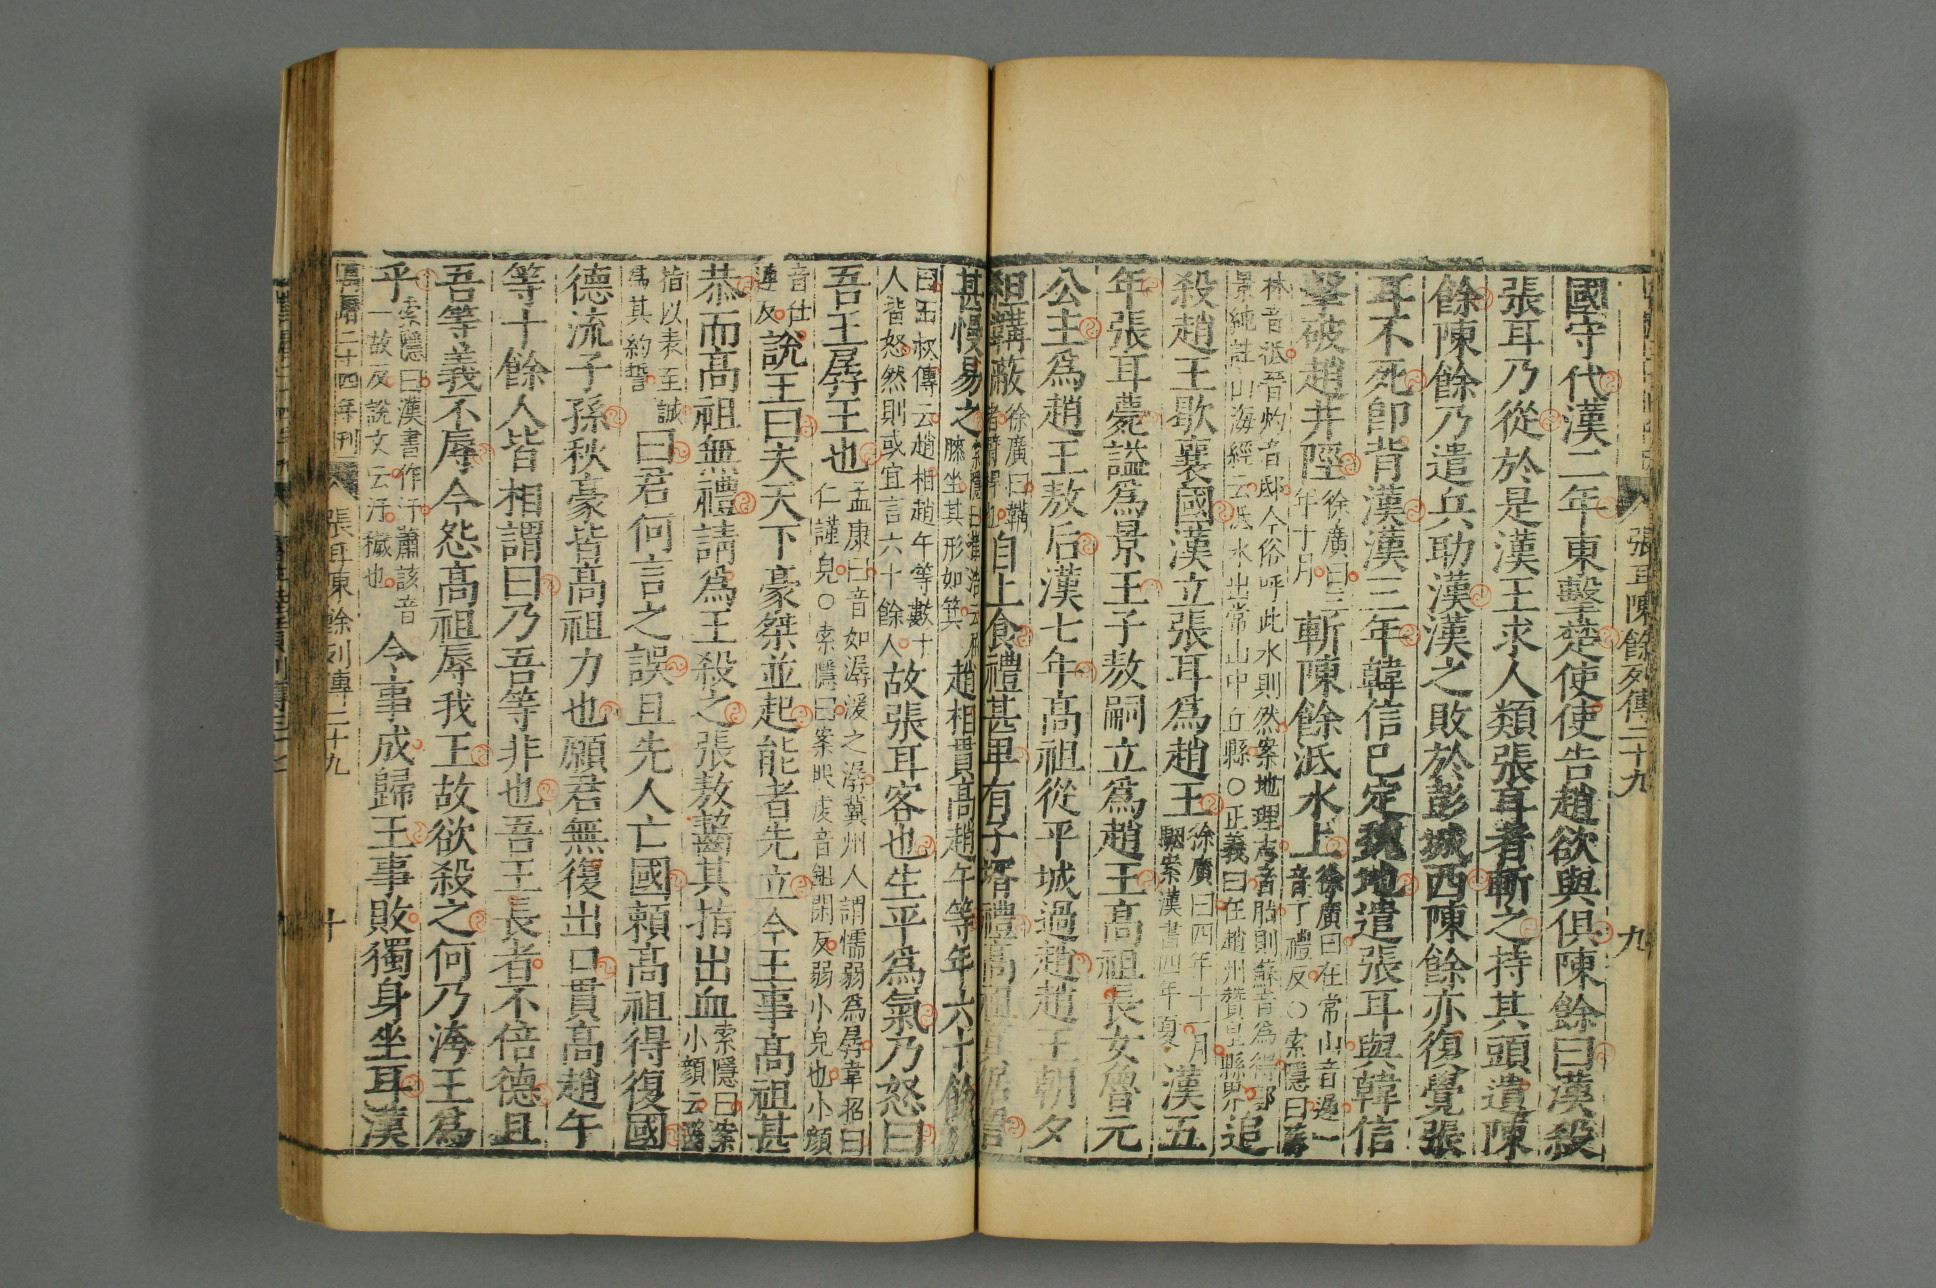 張耳陳餘列傳二十九
九
國守代漢二年東擊楚使使告趙欲與俱陳餘曰漢殺
張耳乃從於是漢王求人類張耳者斬之持其頭遺陳
餘陳餘乃遣兵助漢漢之敗於彭城西陳餘亦復覺張
耳不死卽背漢漢三年韓信已定魏地遣張耳與韓信
擊破趙井陘徐廣曰三年十月斬陳餘泜水上徐廣曰在常山音遲一音丁禮反○索隱曰蘇
林音祗晉灼音邸今俗呼此水則然案地理志音脂則蘇音爲得郭
景純註山海經云泜水出常山中丘縣○正義曰在趙州贊皇縣界追
殺趙王歇襄國漢立張耳爲趙王徐廣曰四年十一月駰案漢書四年夏漢五
年張耳薨謚爲景王子敖嗣立爲趙王高祖長女魯元
公主爲趙王敖后漢七年高祖從平城過趙趙王朝夕
袒韝蔽徐廣曰韝者臂捍也自上食禮甚卑有子壻禮高祖箕踞詈
甚慢易之索隱曰崔浩云屈膝坐其形如箕趙相貫高趙午等年六十餘
田叔傳云趙相趙午等數十
人皆怒然則或宜言六十餘人故張耳客也生平爲氣乃怒曰
吾王孱王也孟康曰音如潺湲之潺冀州人謂懦弱爲孱韋昭曰仁謹皃○索隱曰案服虔音鉏閑反弱小皃也小顔
音仕連反說王曰夫天下豪桀並起能者先立今王事高祖甚
恭而高祖無禮請爲王殺之張敖齧其指出血索隱曰案小顔云齧
指以表至誠爲其約誓曰君何言之誤且先人亡國頼高祖得復國
德流子孫秋豪皆高祖力也願君無復出口貫高趙午
等十餘人皆相謂曰乃吾等非也吾王長者不倍德且
吾等義不辱今怨高祖辱我王故欲殺之何乃洿王爲
乎索隱曰漢書作汙蕭該音一故反說文云汙穢也今事成歸王事敗獨身坐耳漢
萬曆二十四年刊
張耳陳餘列傳二十九
十